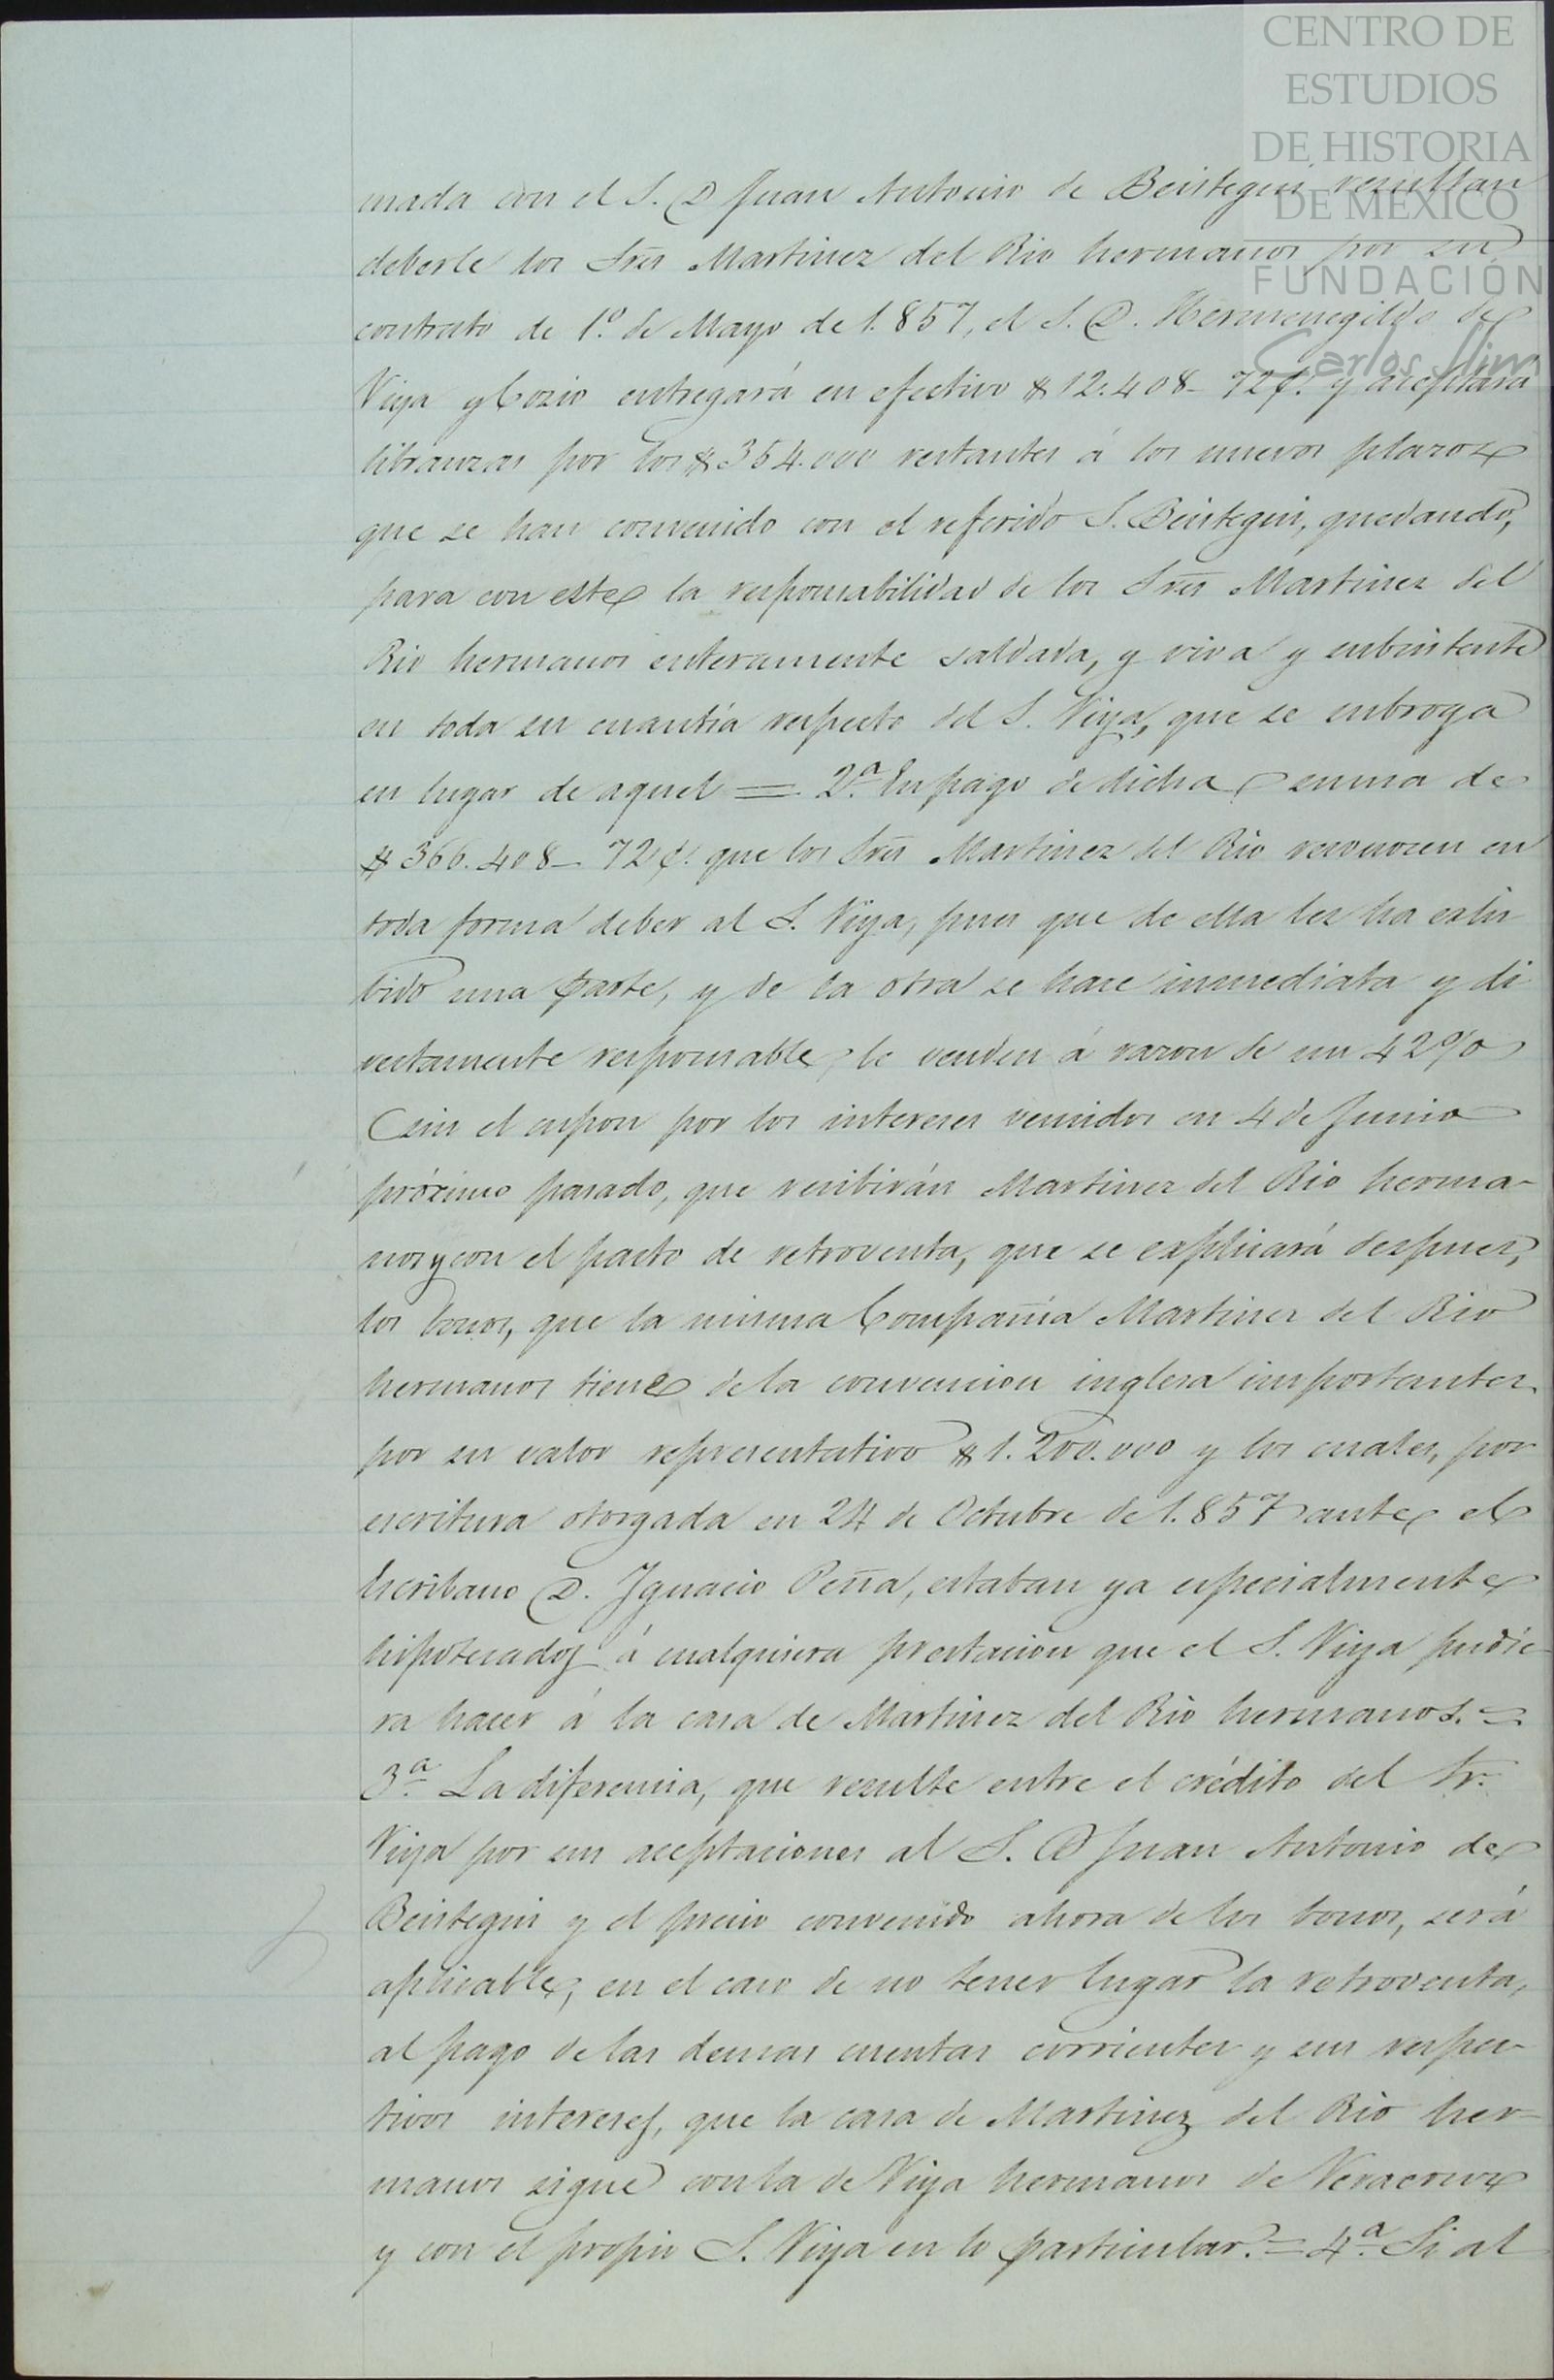 CENTRO DE
ESTUDIOS
DE HISTORIA
DE MÉXICO
FUNDACIÓN
Carlos Slim
mada con el S. D Juan Antonio de Beistegui resultan
deberle los Sres Martinez del Rio hermanos por su
contrato de 1º de Mayo de 1.857, el S. D. Hermenegildo de
Viya y Cozio entregará en efectivo $12.408_ 72¢. y aceptará
libranzas por los $354.000 restantes á los nuevos plazos
que se han convenido con el referido S. Beistegui, quedando,
para con este la responsabilidad de los Sres Martinez del
Rio hermanos enteramente saldada, y viva y subsistente
en toda su cuantía respecto del S. Viya, que se subroga
en lugar de aquel = 2ª En pago de dicha suma de
$366.408_ 72¢. que los Sres Martinez del Rio reconocen en
toda forma deber al S. Viya, pues que de ella les ha exhi
bido una parte, y de la otra se hace inmediata y di
rectamente responsable, le venden á razon de un 42%
(sin el cupon por los intereses vencidos en 4 de Junio
próximo pasado, que recibirán Martinez del Rio herma-
nos y con el pacto de retroventa, que se explicará despues,
los bonos, que la misma Compañía Martinez del Rio
hermanos tiene de la convencion inglesa importantes
por su valor representativo $1.200.000 y los cuales, por
escritura otorgada en 24 de Octubre de 1.857 ante el
Escribano D. Ignacio Peña, estaban ya especialmente
hipotecados á cualquiera prestacion que el S. Viya pudie-
ra hacer á la casa de Martinez del Rio hermanos. =
3ª La diferencia, que resulte entre el crédito del Sr.
Viya por sus aceptaciones al S. D Juan Antonio de
Beistegui y el precio convenido ahora de los bonos, será
aplicable, en el caso de no tener lugar la retroventa,
al pago de las demas cuentas corrientes y sus respec-
tivos intereses, que la casa de Martinez del Rio her-
manos sigue con la de Viya hermanos de Veracruz
y con el propio S. Viya en lo particular. = 4ª Si al